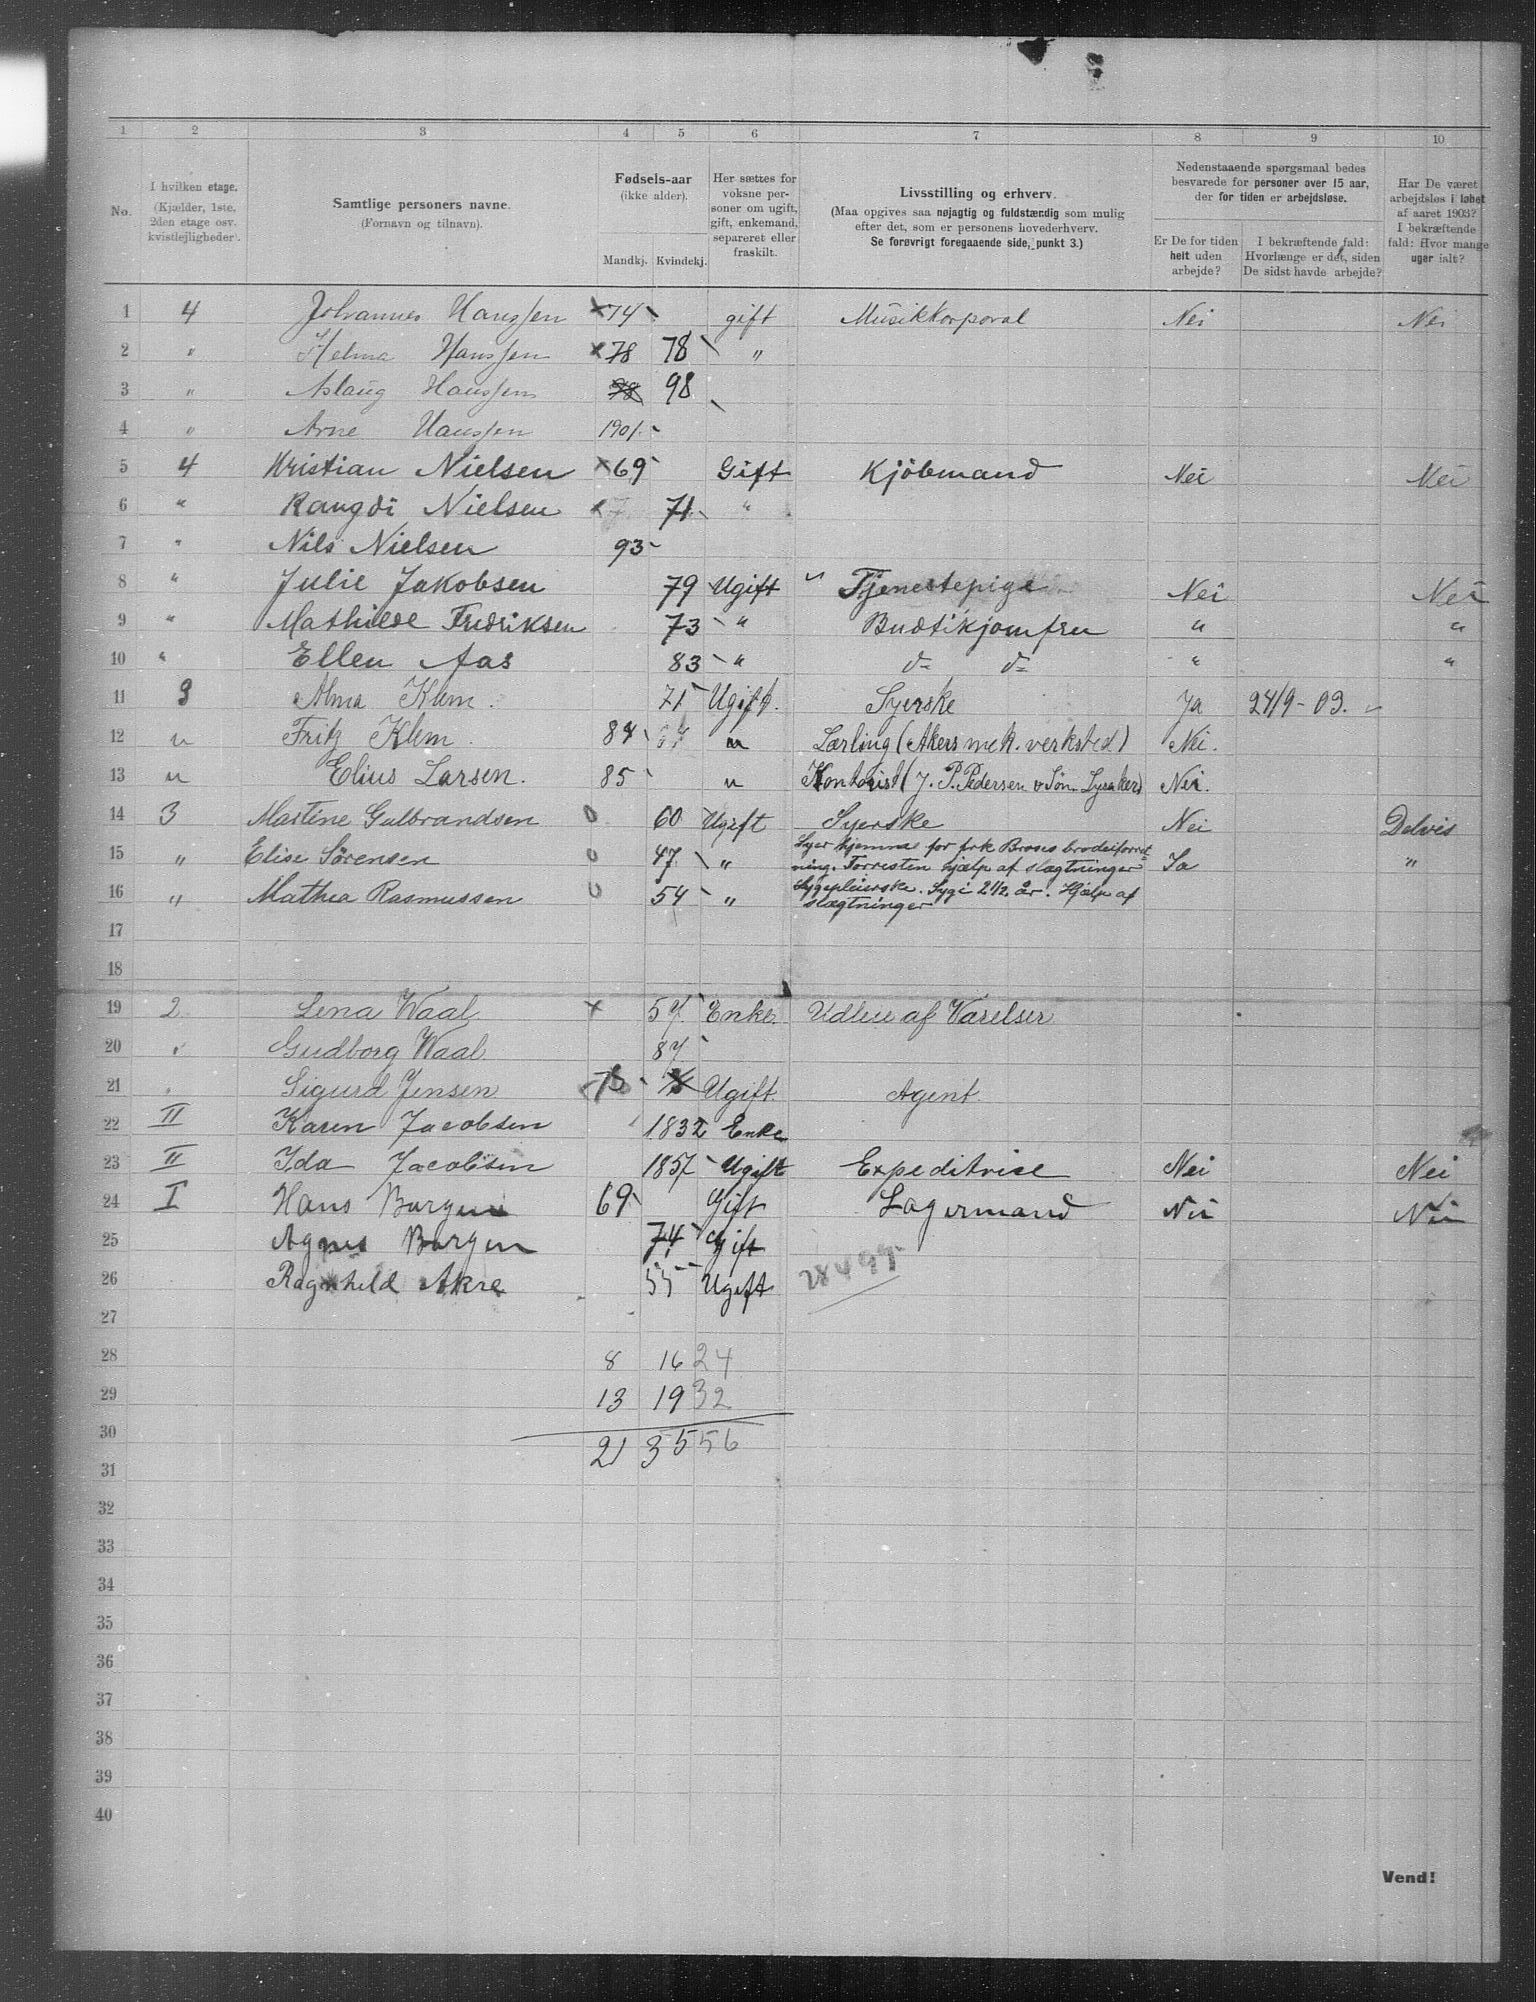 1 2 3 4 5 6 7 8 9 10
No.
I hvilken etage.
(Kjælder, 1ste,
2den etage osv.
kvistlejligheder).
Samtlige personers navne.
(Fornavn og tilnavn).
Fødsels-aar
(ikke alder).
Mandkj. Kvindekj.
Her sættes for
voksne per-
soner om ugift,
gift, enkemand,
separeret eller
fraskilt.
Livsstilling og erhverv.
(Maa opgives saa nøjagtig og fuldstændig som mulig
efter det, som er personens hovederhverv.
Se forøvrigt foregaaende side, punkt 3.)
Nedenstaaende spørgsmaal bedes
besvarede for personer over 15 aar,
der for tiden er arbejdsløse.
Er De for tiden
helt uden
arbejde?
I bekræftende fald:
Hvorlænge er det, siden
De sidst havde arbejde?
Har De været
arbejdsløs i løbet
af aaret 1903?
I bekræftende
fald: Hvor mange
uger ialt?
1 4 Johannes Hanssen × 74 gift Musikkorporal Nei Nei
2 " Helma Hanssen × 78 78 "
3 " Aslaug Hanssen 98 98
4 " Arne Hanssen 1901
5 4 Kristian Nielsen × 69 Gift Kjöbmand Nei Nei
6 " Rangdi Nielsen × 7 71 "
7 " Nils Nielsen 93
8 " Julie Jakobsen 79 Ugift Tjenestepige Nei Nei
9 " Mathilde Fredriksen 73 " Budtikjomfru " "
10 " Ellen Aas 83 " d= d= " "
11 3 Alma Klem. 71 Ugift. Syerske Ja 24/9-03.
12 " Fritz Klem. 84 " Lærling (Akers mek. verksted) Nei.
13 " Elius Larsen. 85 " Kontorist (J. P. Pedersen & Søn. Lysaker) Nei.
14 3 Martine Gulbrandsen 0 60 Ugift Syerske Nei Delvis
15 " Elise Sörensen 0 47 " Syer hjemme for frk Broses broderiforret-
ning. Forresten hjælp af slægtninger Ja "
16 " Mathea Rasmussen 0 54 " Sygepleierske. Syg i 2 1/2 år. Hjælp af
slægtninger
17
18
19 2 Lena Waal × 57 Enke. Udleie af Værelser
20 " Gudborg Waal 87
21 " Sigurd Jensen 78 Ugift. Agent.
22 II Karen Jacobsen 1832 Enke
23 II Ida Jacobsen 1857 Ugift Expeditrice Nei Nei
24 I Hans Borgen 69 Gift Lagermand Nei Nei
25 Agnes Borgen 74 Gift
26 Ragnhild Akre 55 Ugift 28499
27
28 8 16 24
29 13 19 32
30 21 35 56
31
32
33
34
35
36
37
38
39
40
Vend!